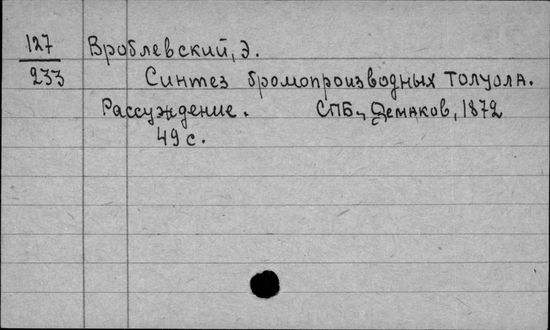 127 Вроблевский, Э.
233 Синтез бромопроизводных толуола.
Рассуждение. СПБ., Демаков, 1872
49 с.